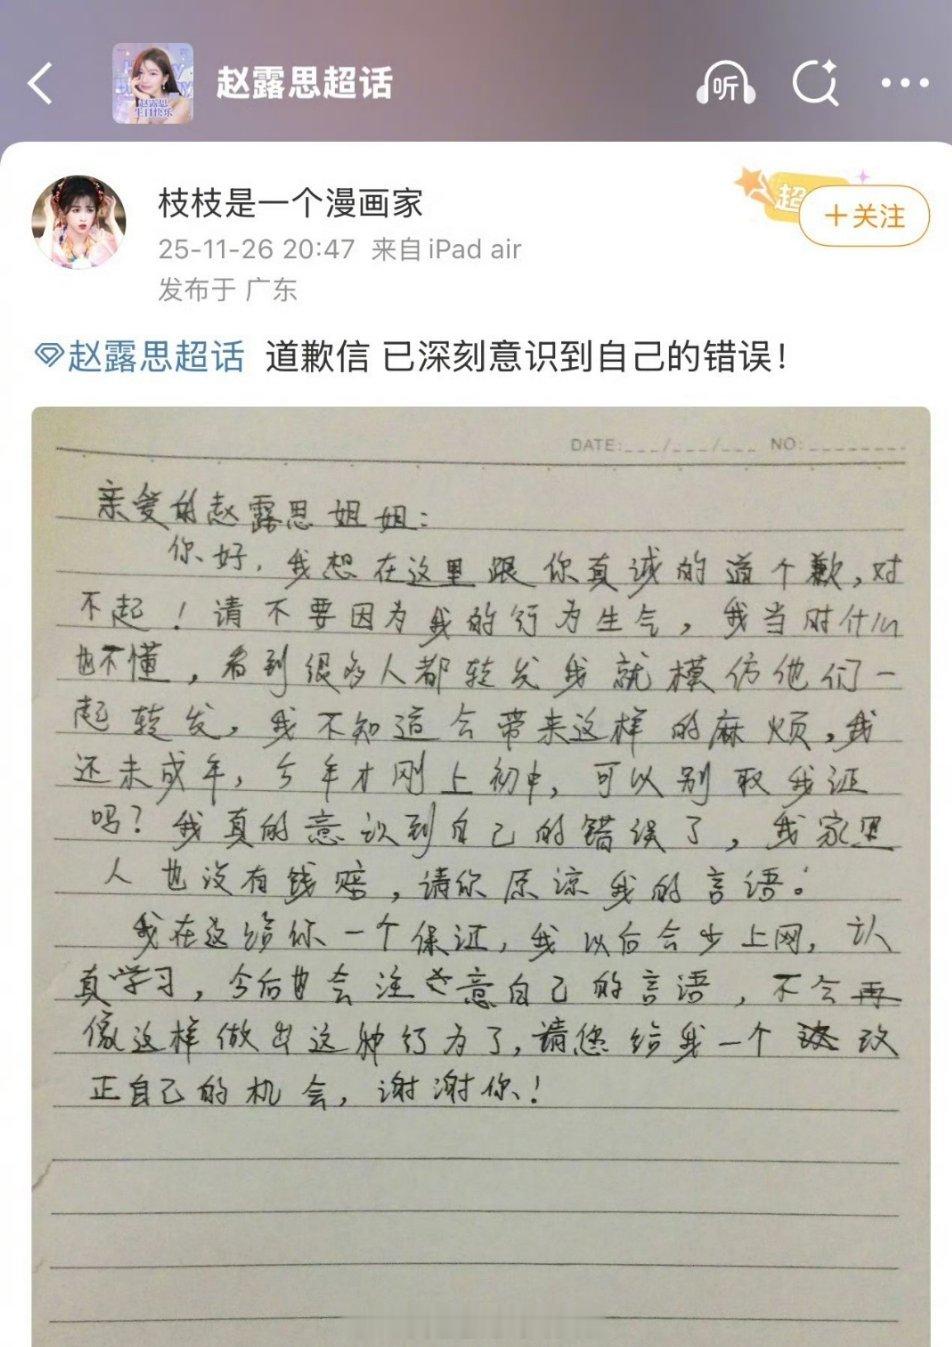 赵露思超话
听
赵露思
生日快乐
枝枝是一个漫画家
25-11-26 20:47 来自 iPad air
发布于 广东
超
+关注
赵露思超话 道歉信 已深刻意识到自己的错误!
DATE:___/___/___ NO:________
亲爱的赵露思姐姐:
你好,我想在这里跟你真诚的道个歉,对
不起!请不要因为我的行为生气,我当时什么
也不懂,看到很多人都转发我就模仿他们一
起转发,我不知道会带来这样的麻烦,我
还未成年,今年才刚上初中,可以别取我证
吗?我真的意识到自己的错误了,我家里
人也没有钱赔,请你原谅我的言语。
我在这给你一个保证,我以后会少上网,认
真学习,今后也会注意自己的言语,不会再
像这样做出这种行为了,请您给我一个改
正自己的机会,谢谢你!